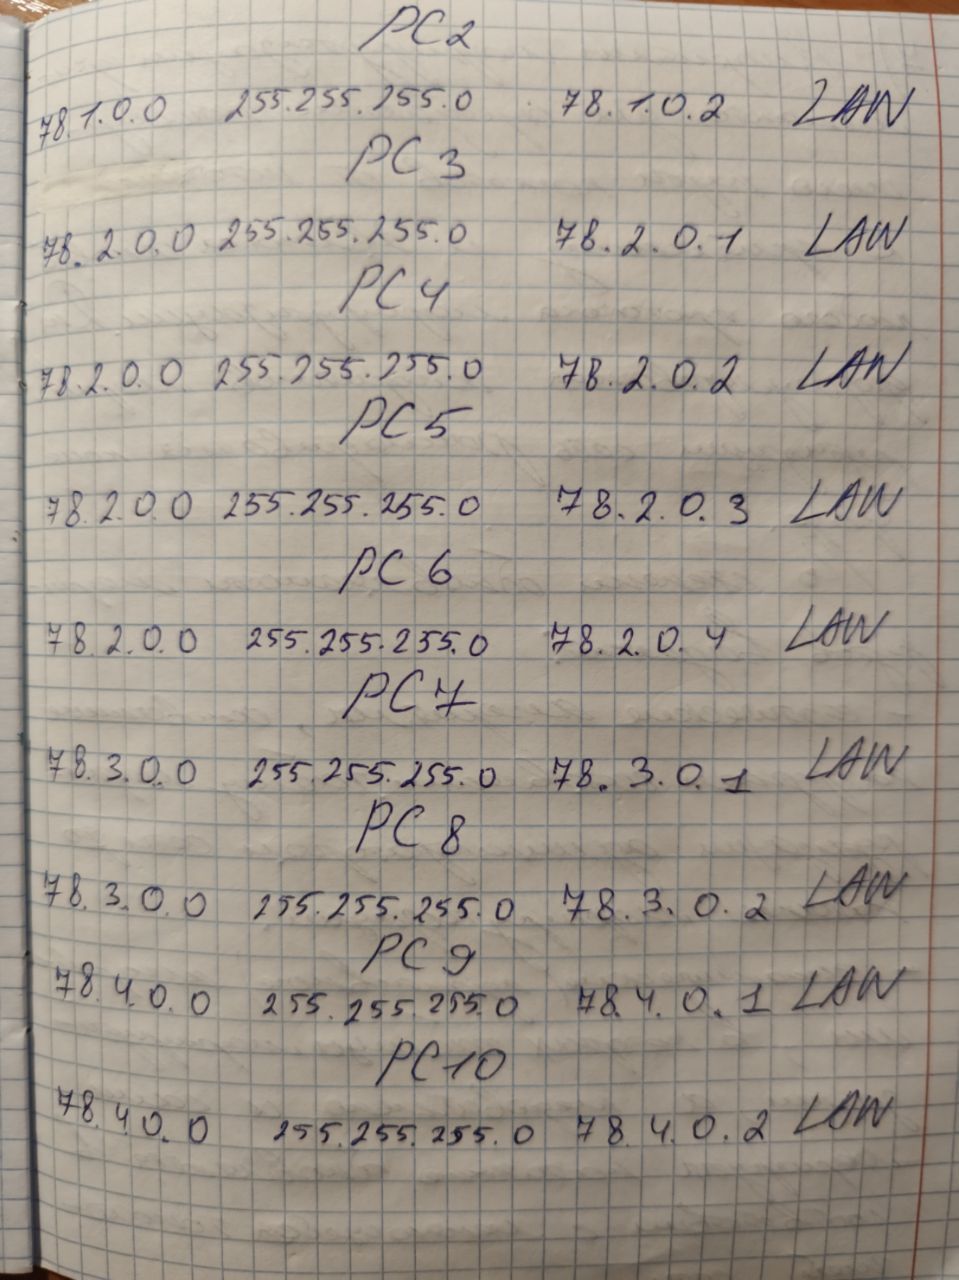 PC2
78.1.0.0 255.255.255.0 78.1.0.2 LAN
PC3
78.2.0.0 255.255.255.0 78.2.0.1 LAN
PC4
78.2.0.0 255.255.255.0 78.2.0.2 LAN
PC5
78.2.0.0 255.255.255.0 78.2.0.3 LAN
PC6
78.2.0.0 255.255.255.0 78.2.0.4 LAN
PC7
78.3.0.0 255.255.255.0 78.3.0.1 LAN
PC8
78.3.0.0 255.255.255.0 78.3.0.2 LAN
PC9
78.4.0.0 255.255.255.0 78.4.0.1 LAN
PC10
78.4.0.0 255.255.255.0 78.4.0.2 LAN